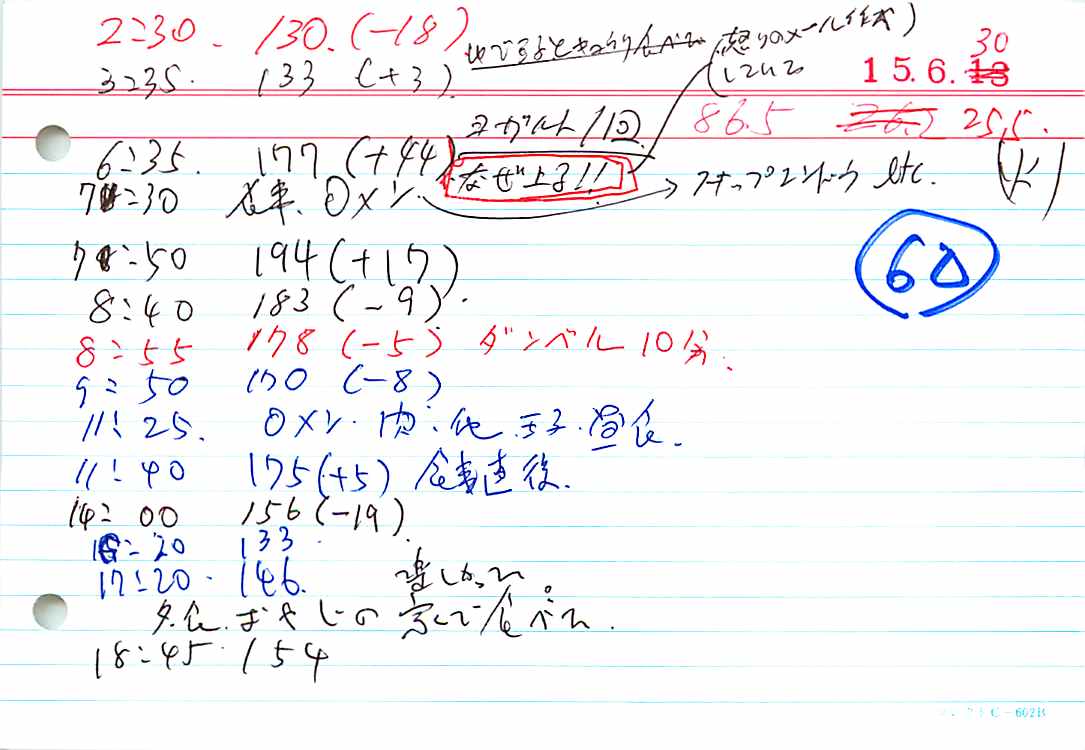 2:30. 130. (-18)
ゆでするときゅうり食べた
(怒りのメール作成)
している
30
15.6.13
3:35. 133 (+3)
86.5 26.2 25.5.
ヨーグルト 1回
6:35. 177 (+44) なぜ上る!!
(火)
7:30 食事. 0メン. → スナップエンドウ etc.
60
7:50 194 (+17)
8:40 183 (-9).
8:55 178 (-5) ダンベル 10分.
9:50 170 (-8)
11:25. 0メン. 肉. 他. 玉子. 昼食.
11:40 175 (+5) 食事直後.
14:00 156 (-19)
16:20 133.
17:20. 146. 楽しかった。
夕食. おやじの家で食べた.
18:45. 154
C-602B